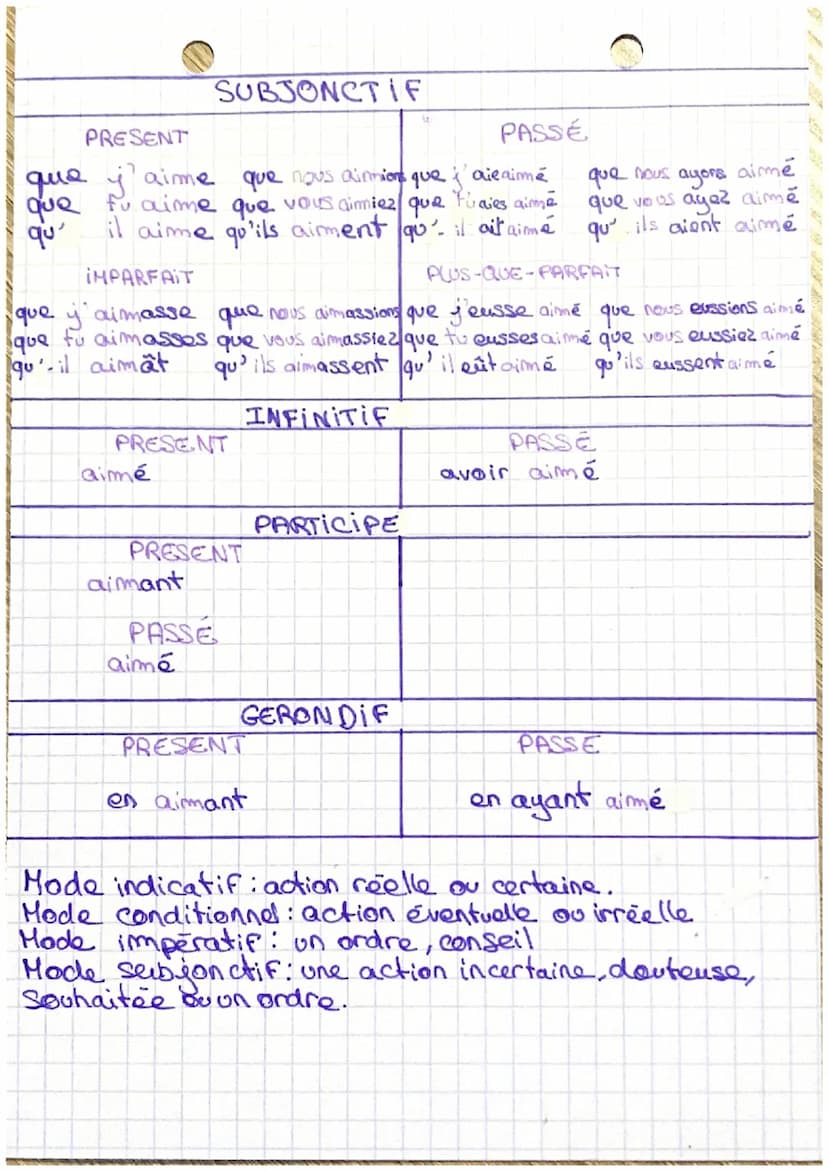 SUBJONCTIF
PRESENT
que j'aime que nous aimions
que tu aime que vous aimiez
qu' il aime qu'ils aiment
PASSÉ
que j'aie aimé que nous ayons aimé
que tu aies aimé que vous ayez aimé
qu'- il ait aimé qu' ils aient aimé
IMPARFAIT
que j'aimasse que nous aimassions
que tu aimasses que vous aimassiez
qu'-il aimât qu'ils aimassent
PLUS-QUE-PARFAIT
que j'eusse aimé que nous eussions aimé
que tu eusses aimé que vous eussiez aimé
qu' il eût aimé qu'ils eussent aimé
INFINITIF
PRESENT
aimé
PASSÉ
avoir aimé
PARTICIPE
PRESENT
aimant
PASSÉ
aimé
GERONDIF
PRESENT
en aimant
PASSE
en ayant aimé
Mode indicatif : action réelle ou certaine.
Mode conditionnel : action éventuelle ou irréelle
Mode impératif : un ordre, conseil
Mode subjonctif : une action incertaine, douteuse,
souhaitée ou un ordre.